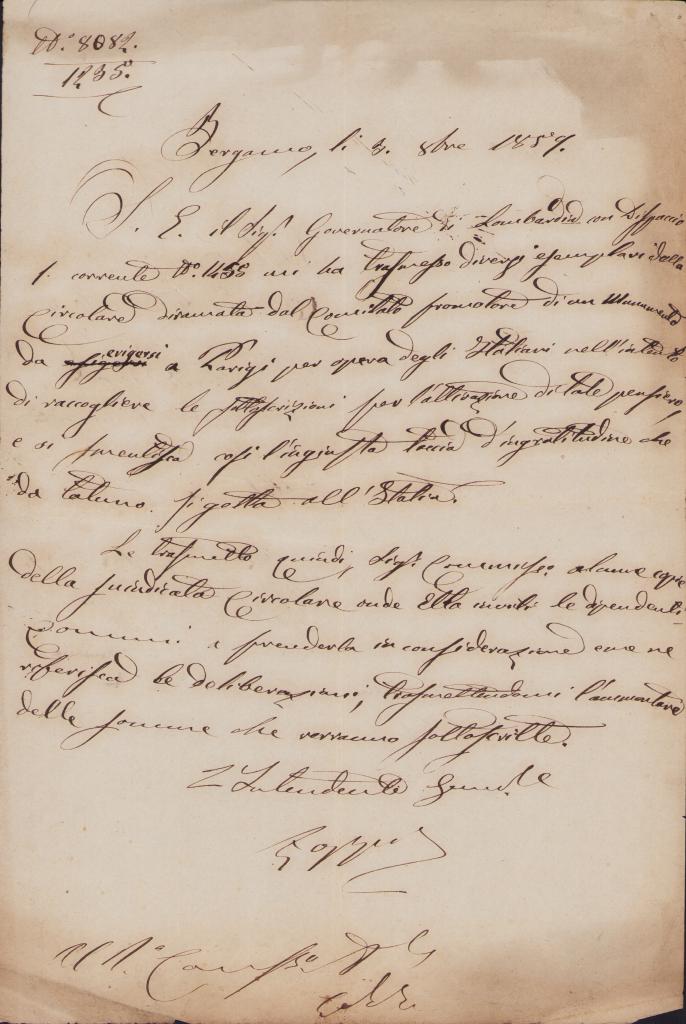 N.° 8082.
1235.
Bergamo, li 3. 8bre 1859.
S. E. il Sig.r Governatore di Lombardia con Dispaccio
1. corrente N.° 1455 mi ha trasmesso diversi esemplari della
Circolare diramata dal Comitato promotore di un Monumento
da erigersi a Parigi per opera degli Italiani nell'intento
di raccogliere le sottoscrizioni per l'attivazione di tale pensiero,
e si smentisca così l'ingiusta taccia d'ingratitudine che
da taluno si getta all'Italia.
Le trasmetto quindi, Sig.r Commiss.o alcune copie
della suindicata Circolare onde Ella inviti le dipendenti
Comuni a prenderla in considerazione e me ne
riferisca le deliberazioni, trasmettendomi l'ammontare
delle somme che verranno sottoscritte.
L'Intendente Gen.le